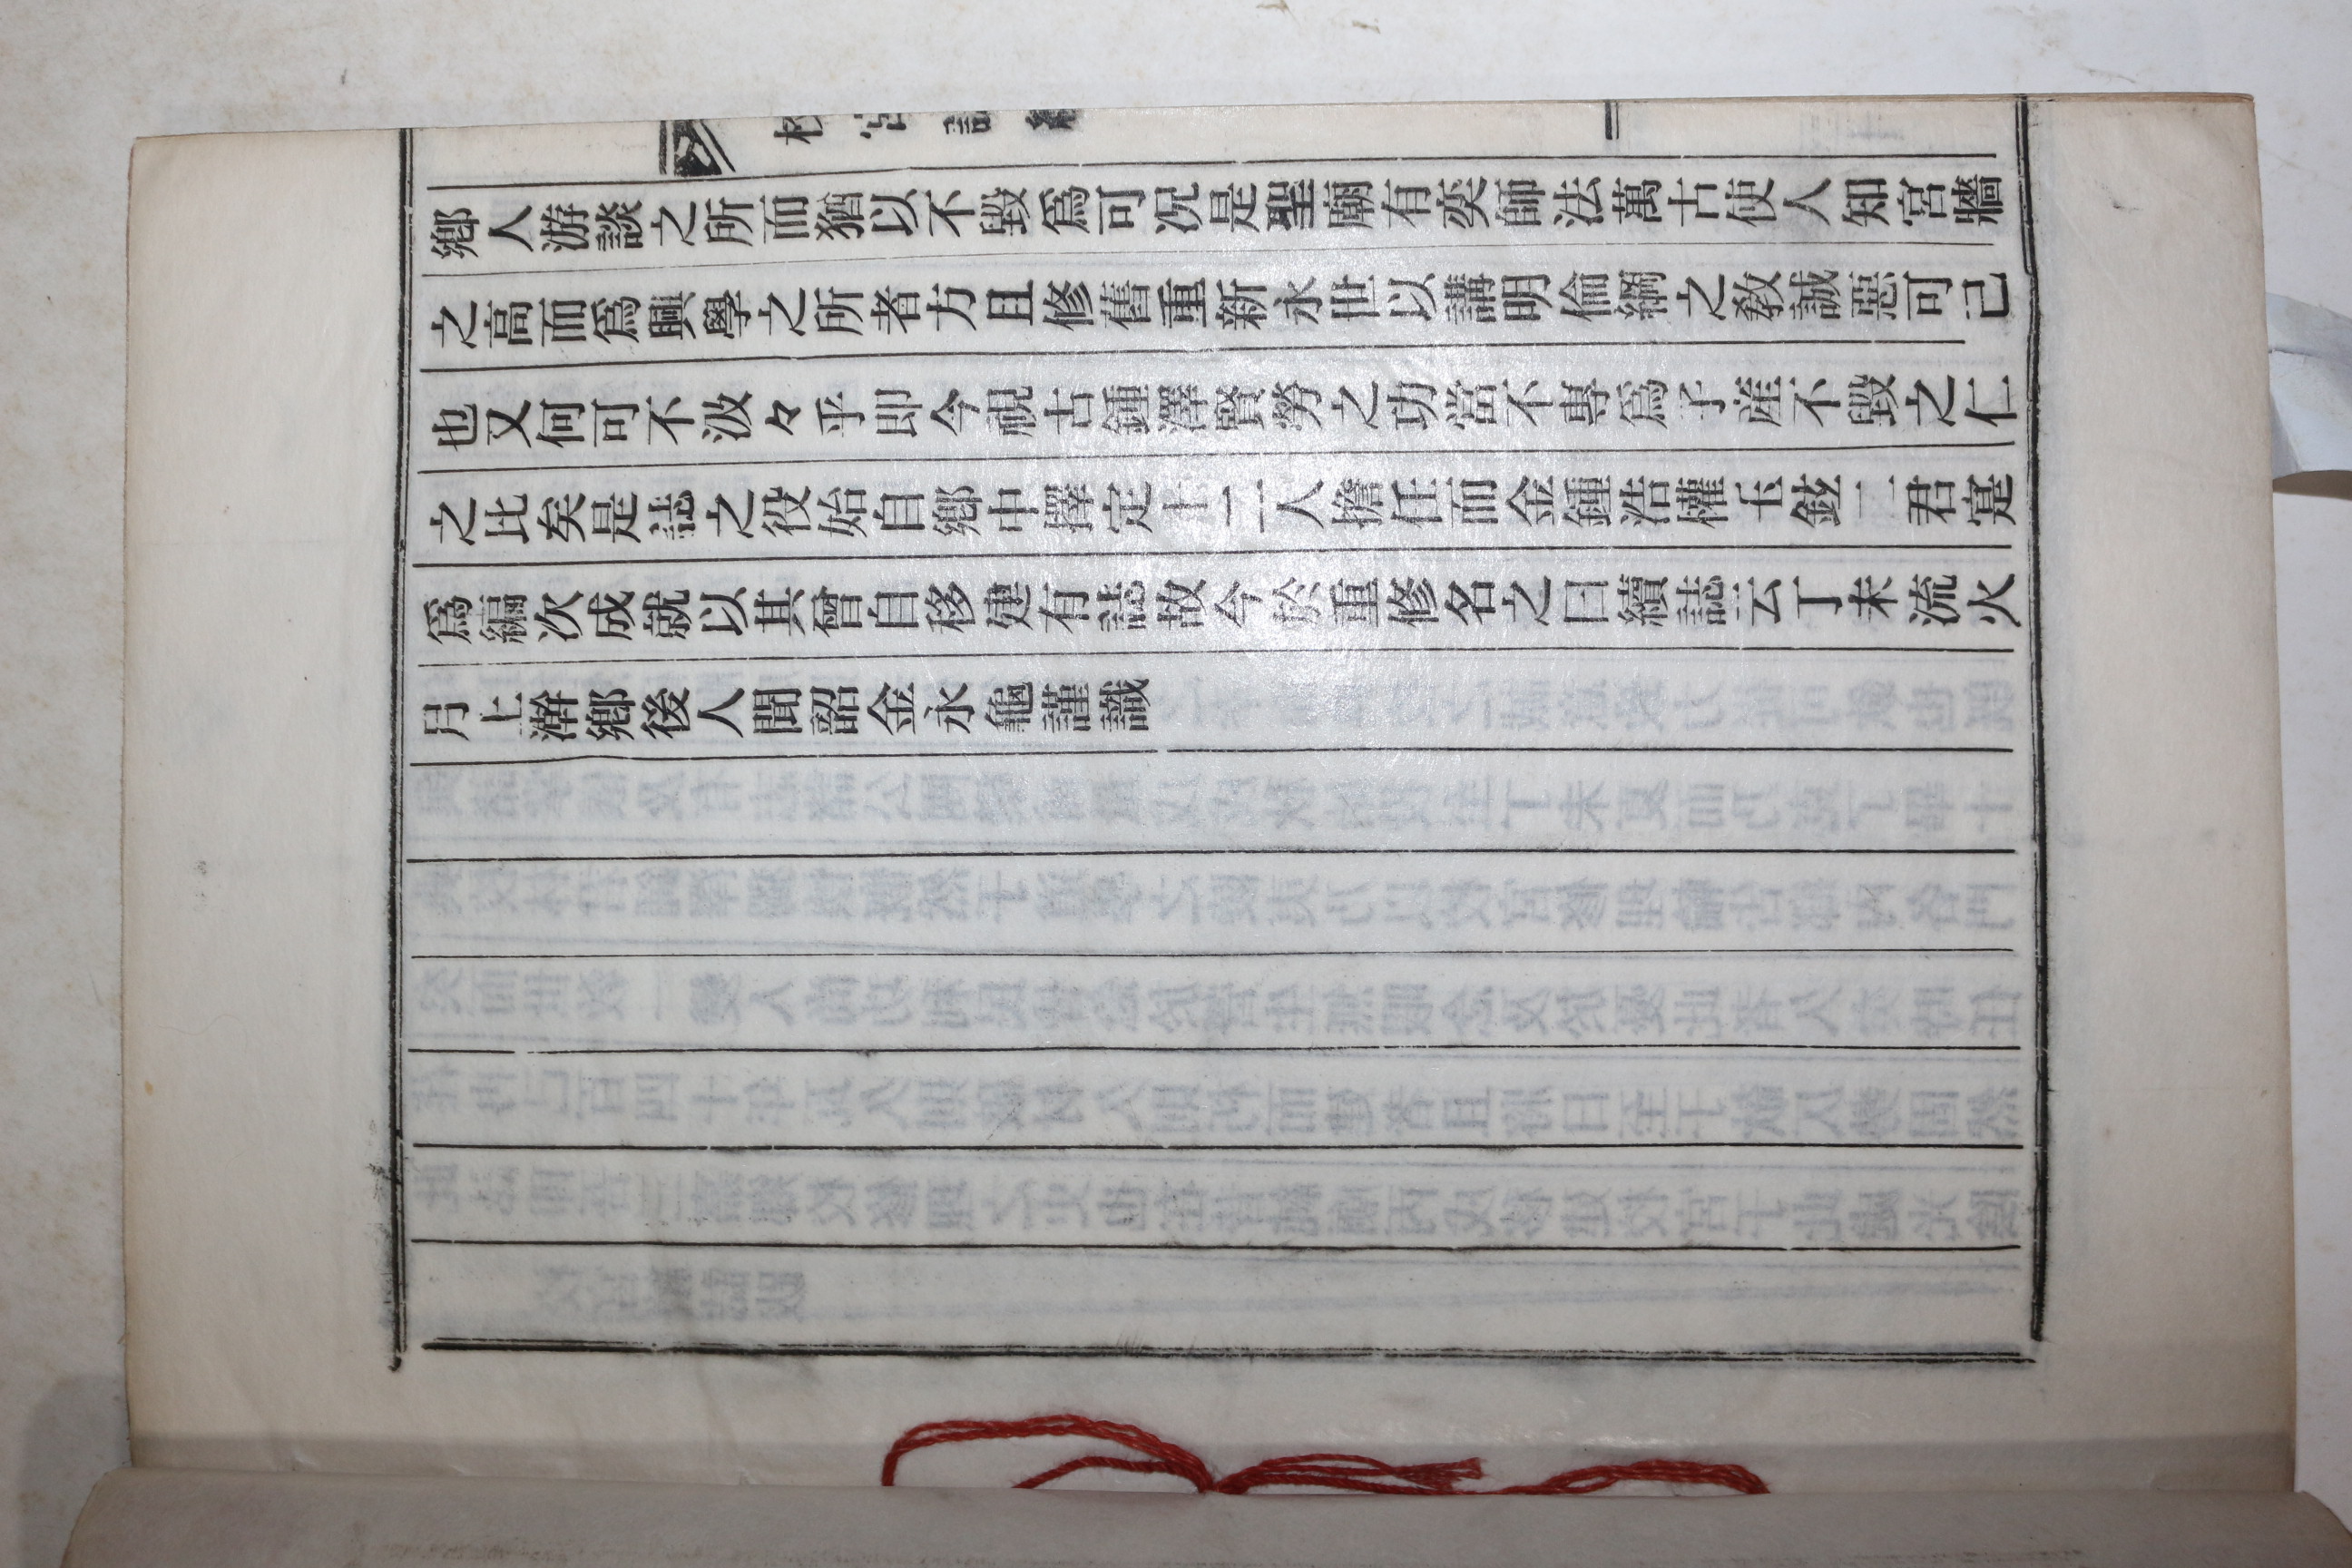 鄉人游談之所而猶以不毀爲可况是聖廟有奕師法萬古使人知宮牆
之高而爲興學之所者方且修舊重新永世以講明倫綱之教誠惡可已
也又何可不汲々乎即今視古鍾澤賢勞之功當不專爲子產不毀之仁
之比矣是誌之役始自鄉中擇定十二人擔任而金鍾浩權玉鉉二君寔
爲編次成就以其曾自移建有誌故今於重修名之曰續誌云丁未流火
月上澣鄉後人聞韶金永龜謹識